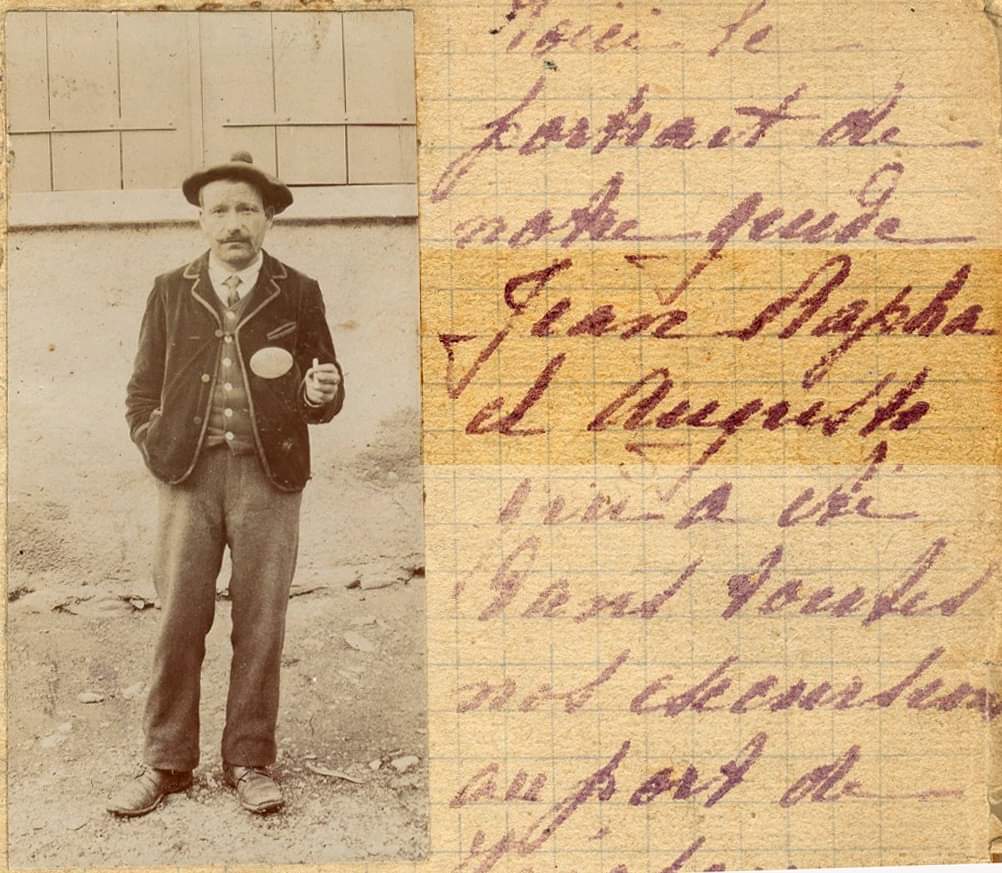 Voici le
portrait de
notre guide
Jean Rapha
el Auguste
qui a été
Dans toutes
nos excursions
au port de